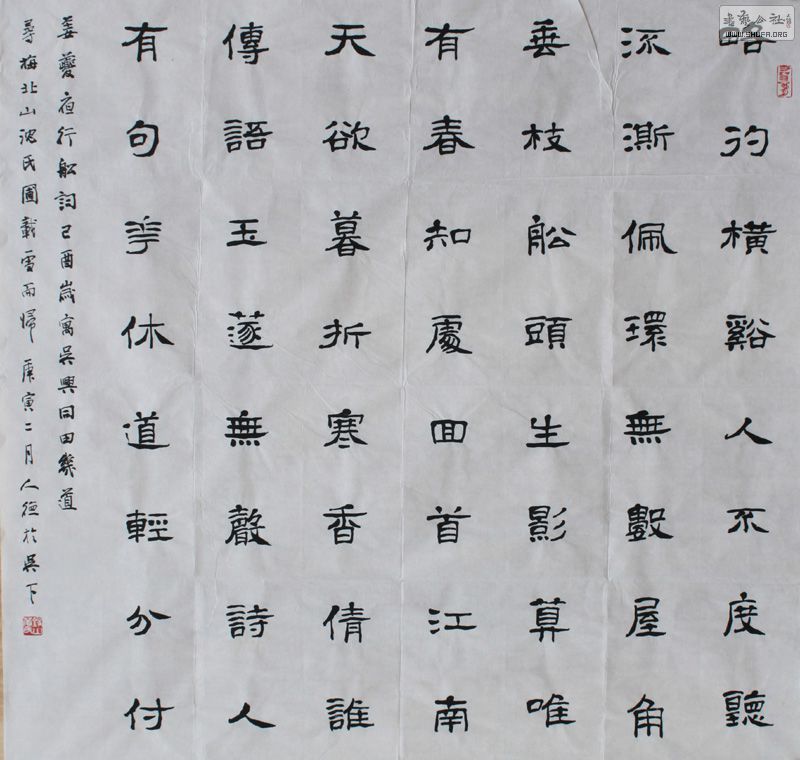 略彴橫谿人不度聽
流澌佩環無數屋角
垂枝船頭生影算唯
有春知處回首江南
天欲暮折寒香倩誰
傳語玉篴無聲詩人
有句華休道輕分付
姜夔夜行船詞己酉歲寓吳興同田幾道
尋梅北山沈氏圃載雪而歸 庚寅二月人德於吳下
書法公社
WWW.SHUFA.ORG